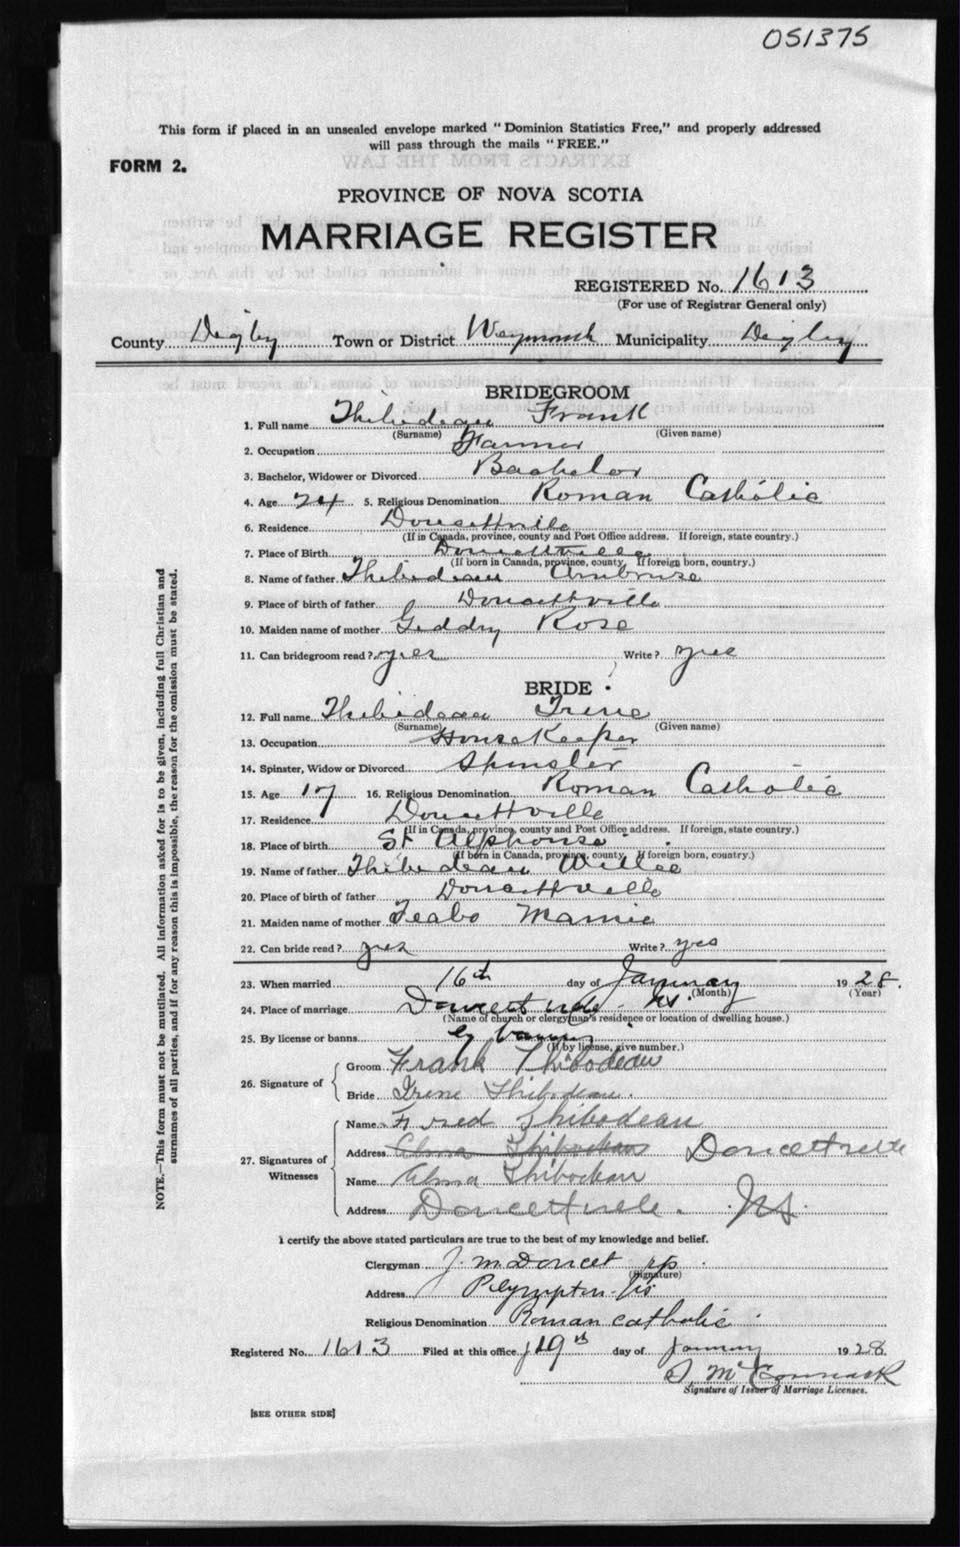 051375
This form if placed in an unsealed envelope marked "Dominion Statistics Free," and properly addressed
will pass through the mails "FREE."
FORM 2.
PROVINCE OF NOVA SCOTIA
MARRIAGE REGISTER
REGISTERED No. 1613
(For use of Registrar General only)
County Digby Town or District Weymouth Municipality Digby
BRIDEGROOM
1. Full name Thibideau Frank
(Surname) (Given name)
2. Occupation Farmer
3. Bachelor, Widower or Divorced Bachelor
4. Age 24 5. Religious Denomination Roman Catholic
6. Residence Doucettville
(If in Canada, province, county and Post Office address. If foreign, state country.)
7. Place of Birth Doucettville
(If born in Canada, province, county, If foreign born, country.)
8. Name of father Thibideau Ambrose
9. Place of birth of father Doucettville
10. Maiden name of mother Geddry Rose
11. Can bridegroom read? yes Write? yes
BRIDE
12. Full name Thibideau Irene
(Surname) (Given name)
13. Occupation House Keeper
14. Spinster, Widow or Divorced Spinster
15. Age 17 16. Religious Denomination Roman Catholic
17. Residence Doucettville
(If in Canada, province, county and Post Office address. If foreign, state country.)
18. Place of birth St Alphonse
(If born in Canada, province, county, If foreign born, country.)
19. Name of father Thibideau Willie
20. Place of birth of father Doucettville
21. Maiden name of mother Teabo Mamie
22. Can bride read? yes Write? yes
23. When married 16th day of January 1928.
(Month) (Year)
24. Place of marriage Doucettville NS.
(Name of church or clergyman's residence or location of dwelling house.)
25. By license or banns By banns
(If by license, give number.)
26. Signature of
Groom Frank Thibodeau
Bride Irene Thibodeau.
27. Signatures of Witnesses
Name Fred Thibodeau
Address Alma Thibodeau Doucettville
Name Alma Thibodeau
Address Doucettville. NS.
I certify the above stated particulars are true to the best of my knowledge and belief.
Clergyman J. M. Doucet pp.
(Signature)
Address Plympton NS
Religious Denomination Roman Catholic
Registered No. 1613 Filed at this office 19th day of January 1928.
McCormack
Signature of Issuer of Marriage Licenses.
[SEE OTHER SIDE]
NOTE.—This form must not be mutilated. All information asked for is to be given, including full Christian and
surnames of all parties, and if for any reason this is impossible, the reason for the omission must be stated.